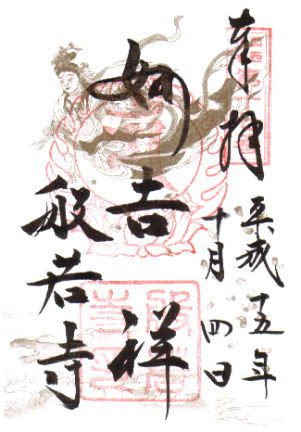 奉拝
平成十五年
十月四日
如吉祥
般若寺